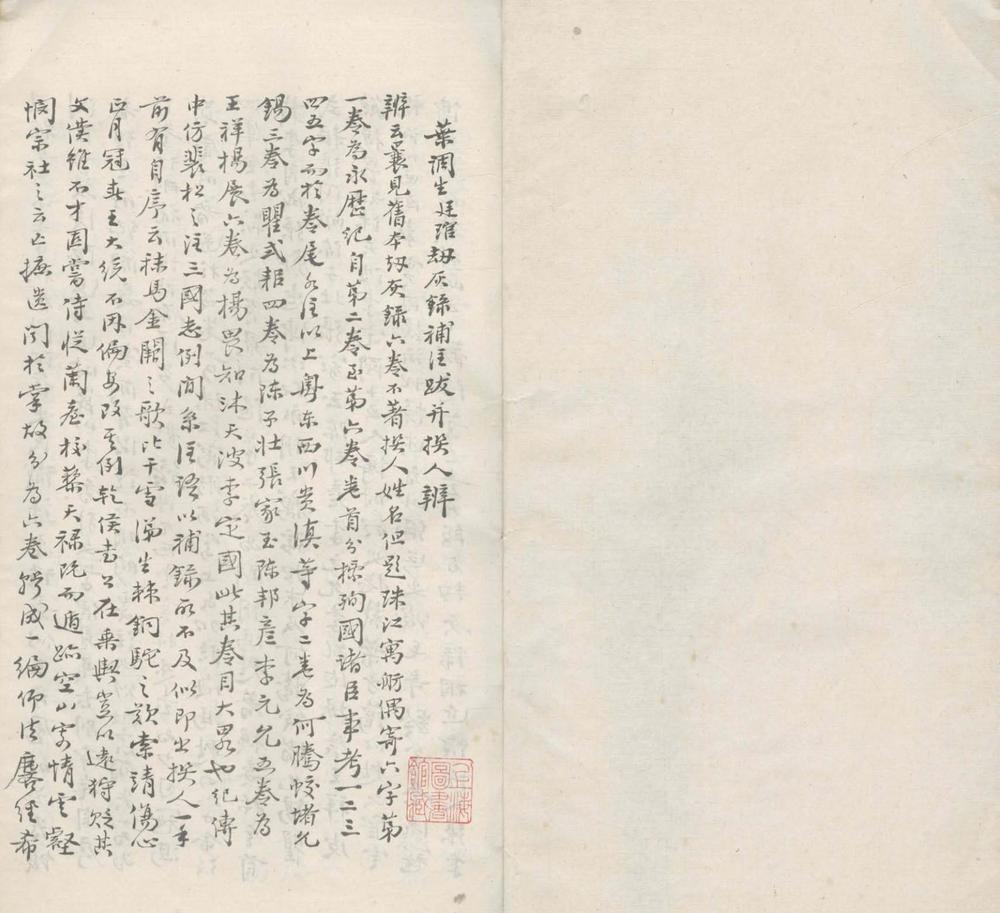 葉調生廷琯劫灰錄補注跋并撰人辨
辨云曩見舊本劫灰錄六卷不著撰人姓名但題珠江寓舫偶寄六字第
一卷為永歷紀自第二卷至第六卷卷首分標殉國諸臣事考一二三
四五字而於卷尾各注以上粵东西川贵滇等字二卷為何騰蛟堵允
錫三卷為瞿式耜四卷為陈子壯張家玉陈邦彦李元允五卷為
王祥楊展六卷為楊畏知沐天波李定國此其卷目大畧也纪傳
中仿裴松之注三國志例间系注语以補錄所不及似即出撰人一手
前有自序云秣馬金闕之歌比干雪涕生棘銅駝之歎索靖傷心
正月冠春王大统不因偏安改其例乾侯书公在乘輿豈以遠狩贬其
文僕雖不才固嘗侍従蘭臺校藜天禄既而遁跡空山寄情雲壑
悯宗社之云亡摭遗闻於掌故分為六卷彚成一编仰法麐经希
上海圖書館藏